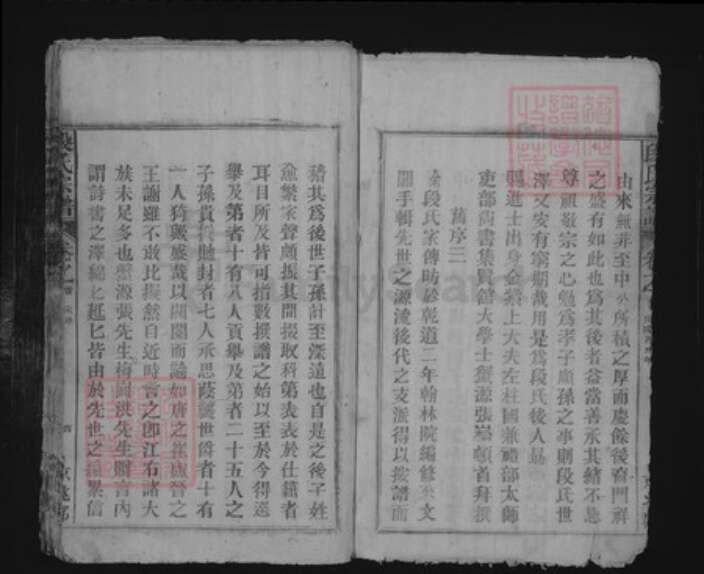 由來無非至中公所積之厚而慶餘後奮門祥
之盛有如此也為其後者益當善承其緒不怠
尊祖敬宗之心勉為孝子順孫之事則段氏世
澤又安有窮期哉用是為段氏後人勗
賜進士出身金紫上大夫左柱國兼禮部太師
吏部尚書集賢館大學士盤源張 頓首拜撰
舊序三
段氏家傳昉於乾道二年翰林院編修 文
開手輯先世之源流後代之支派得以按譜而
稽其為後世子孫計至深遠也自是之後子姓
愈繁家聲頗振其間掇取科第表表於仕籍者
耳目所及皆可指數撰譜之始以至於今得選
舉及第者十有八人貢舉及第者二十五人之
子孫貴 貤封者七人承恩蔭襲世爵者十有
一人猗歟盛哉以閥閱而論如唐之崔盧晉之
王謝雖不敢比擬然自近時言之即江右諸大
族未足多也盤源張先生梅 洪先生嘗言
謂詩書之澤綿 延 皆由於先世之 累信
段氏宗譜
卷之